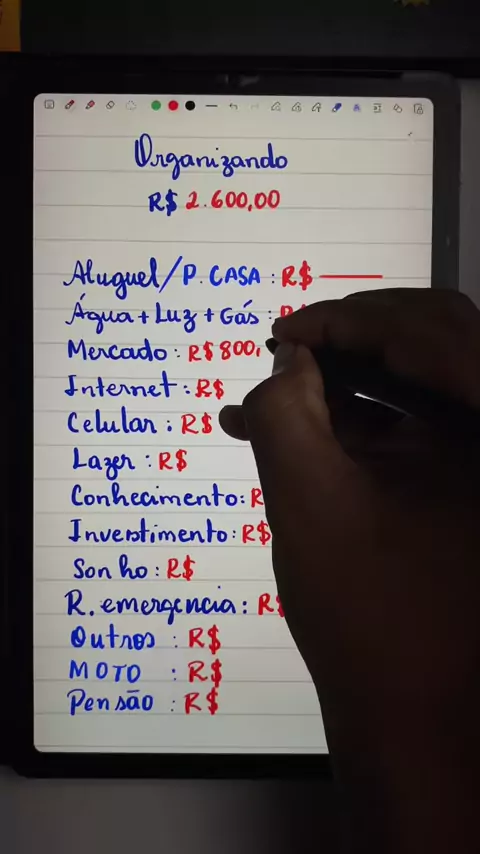 Organizando
R$ 2.600,00
Aluguel/P. CASA : R$
Água + Luz + Gás :
Mercado : R$ 800,
Internet : R$
Celular : R$
Lazer : R$
Conhecimento: R
Investimento: R$
Sonho : R$
R. emergencia : R$
Outros : R$
MOTO : R$
Pensão : R$